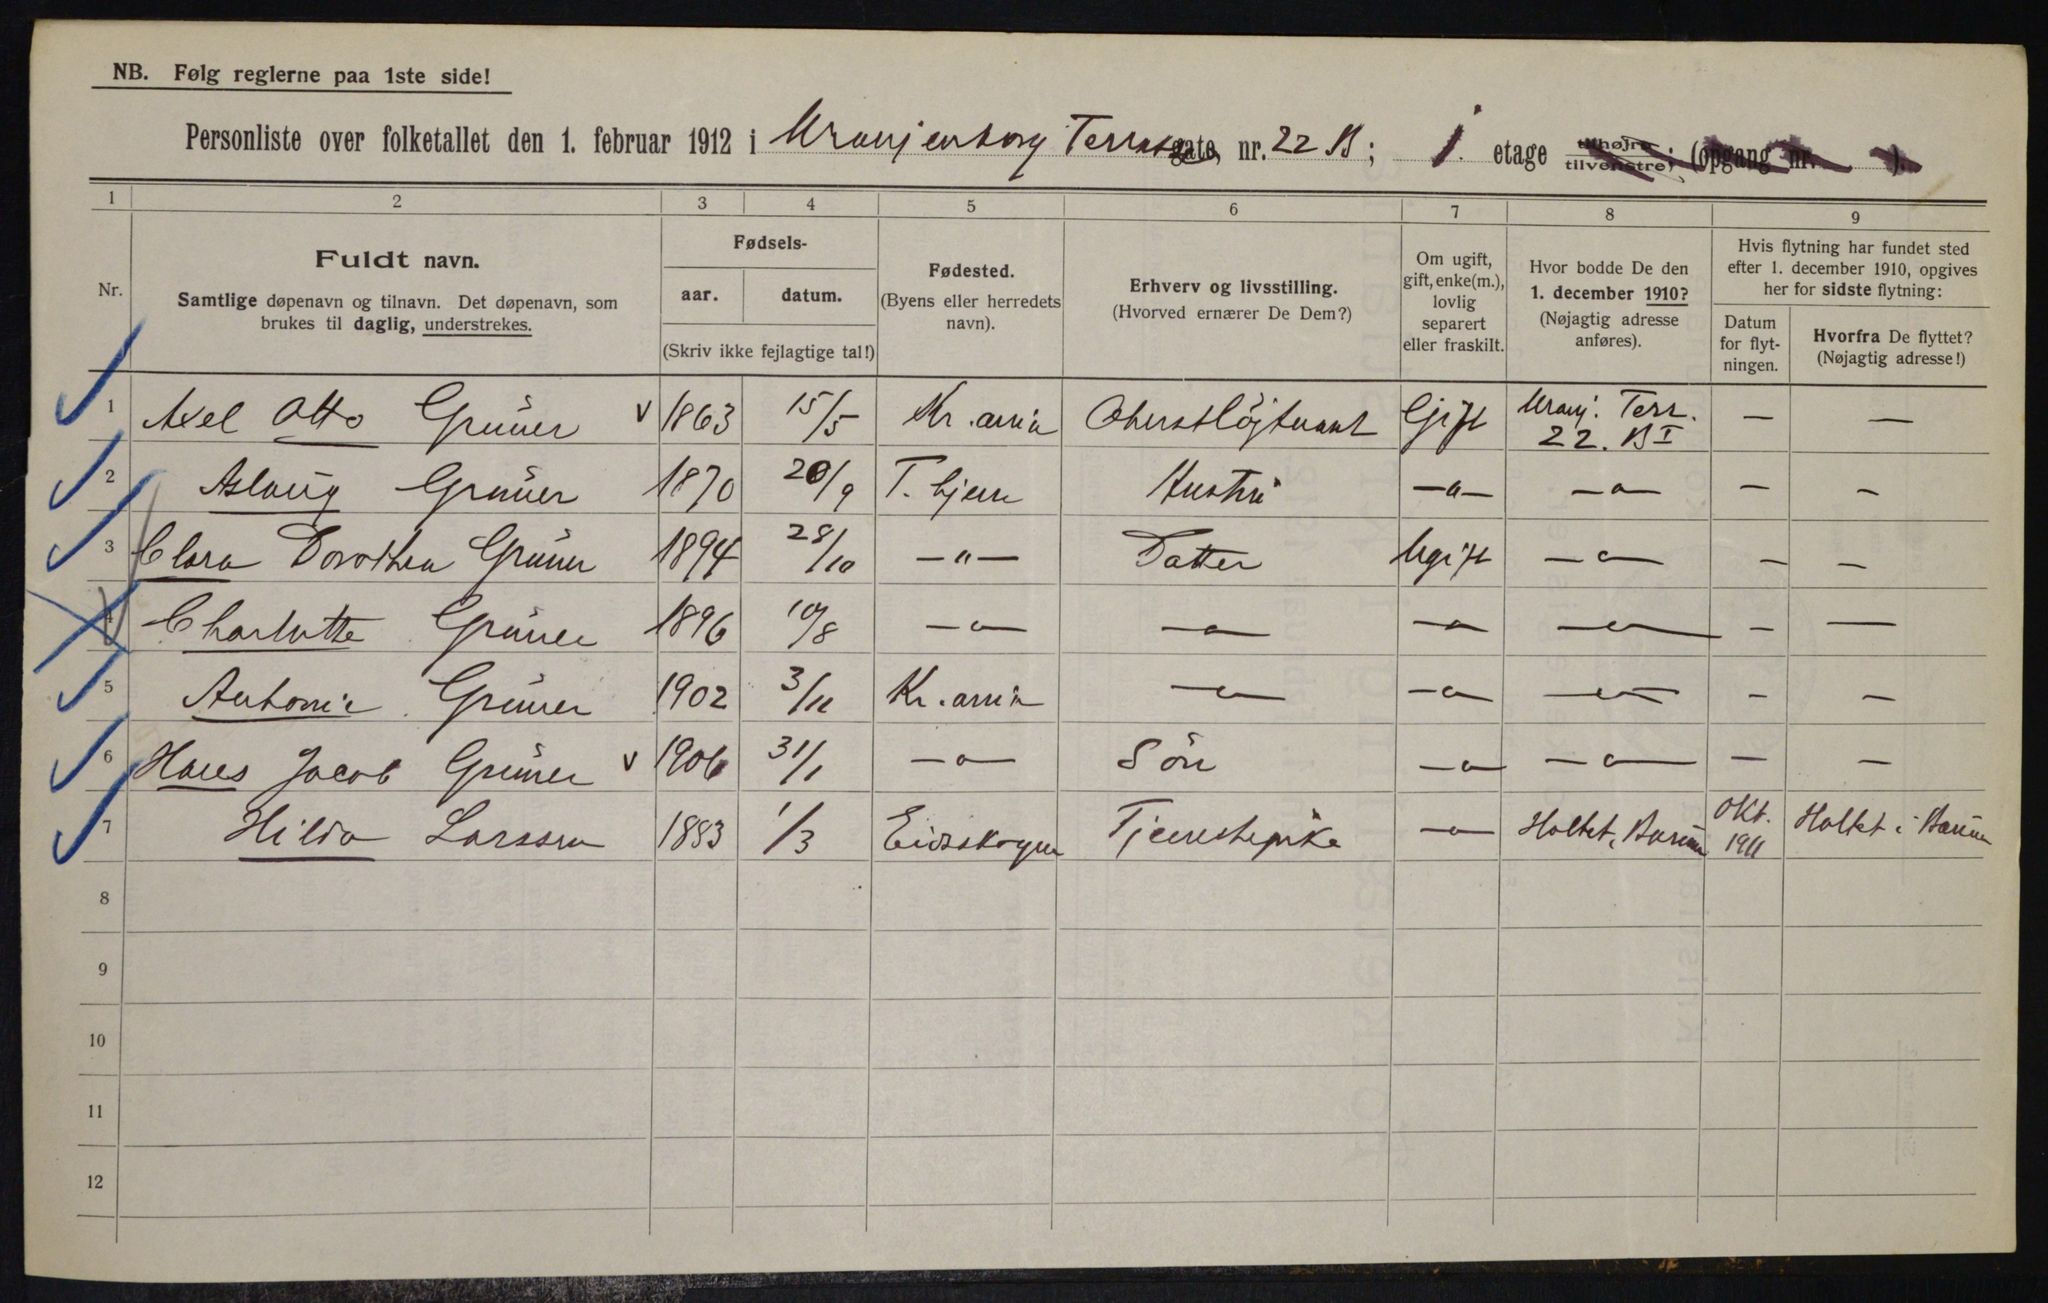 NB. Følg reglerne paa 1ste side!
Personliste over folketallet den 1. februar 1912 i Uranjenborg Terrasse gate, nr. 22 B; 1. etage tilhøjre tilvenstre; (opgang nr. ).
1 2 3 4 5 6 7 8 9
Nr.
Fuldt navn.
Samtlige døpenavn og tilnavn. Det døpenavn, som
brukes til daglig, understrekes.
Fødsels-
aar. datum.
(Skriv ikke fejlagtige tal!)
Fødested.
(Byens eller herredets
navn).
Erhverv og livsstilling.
(Hvorved ernærer De Dem?)
Om ugift,
gift, enke(m.),
lovlig
separert
eller fraskilt.
Hvor bodde De den
1. december 1910?
(Nøjagtig adresse
anføres).
Hvis flytning har fundet sted
efter 1. december 1910, opgives
her for sidste flytning:
Datum
for flyt-
ningen.
Hvorfra De flyttet?
(Nøjagtig adresse!)
1 Axel Otto Grüner v 1863 15/5 Kr.ania Oberstløjtnant Gift Uranj. Terr. 22. B I — —
2 Aslaug Grüner 1870 20/9 T.hjem Hustru —"— —"— — —
3 Clara Dorothea Grüner 1894 28/10 —"— Datter Ugift —"— — —
4 Charlotte Grüner 1896 10/8 —"— —"— —"— —"— — —
5 Antonie Grüner 1902 3/11 Kr.ania —"— —"— —"— — —
6 Hans Jacob Grüner v 1906 31/1 —"— Sön —"— —"— — —
7 Hilda Larssen 1883 1/3 Eidskogen Tjenestepike —"— Holtet, Bærum Okt. 1911 Holtet i Bærum
8
9
10
11
12